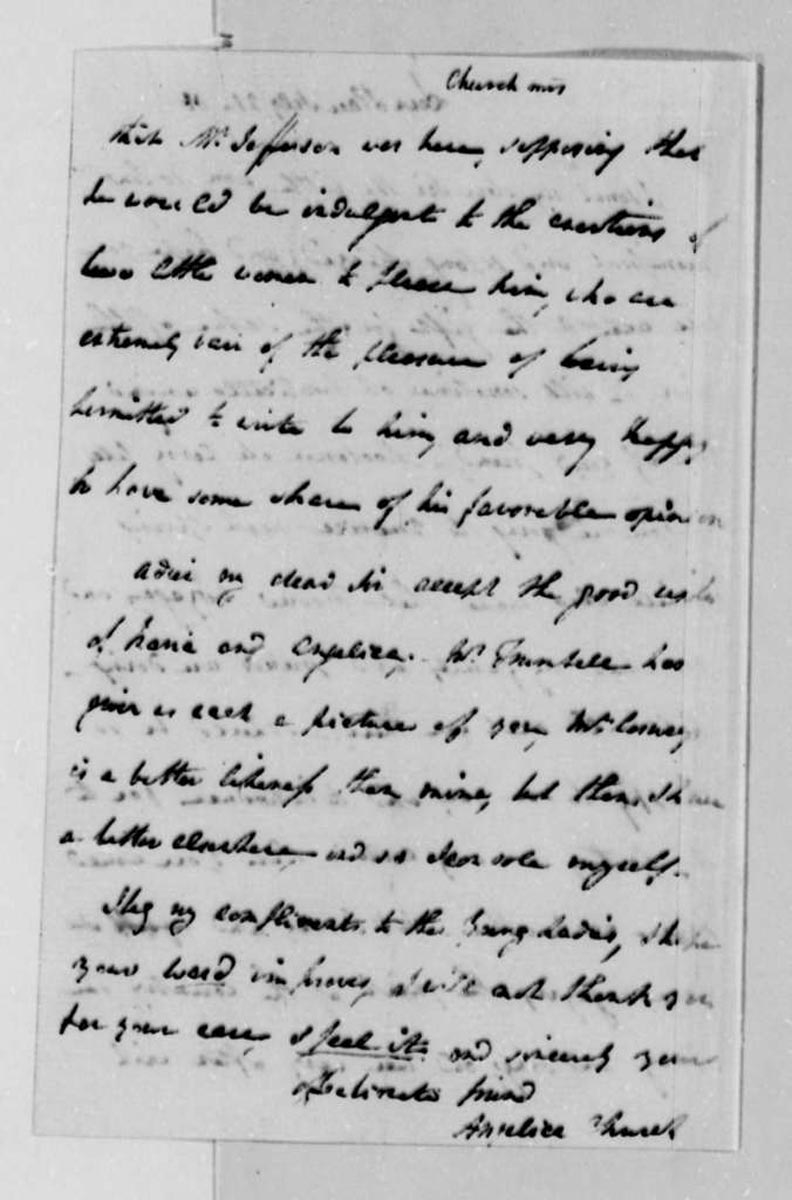 Church mrs
that Mr. Jefferson was here, supposing that
he would be indulgent to the exertions of
two little women to please him, who are
extremely vain of the pleasure of being
permitted to write to him, and very happy
to have some share of his favorable opinion
adieu my dear Sir accept the good wishes
of Maria and Angelica. Mr. Trumbull has
given us each a picture of you, Mrs. Cosway's
is a better likeness than mine, but then, I have
a better elsewhere and so I console myself.
I beg my compliments to the Young Ladies, I hope
your ward improves, I will not thank you
for your care, I feel it and sincerely your
affectionate friend
Angelica Church